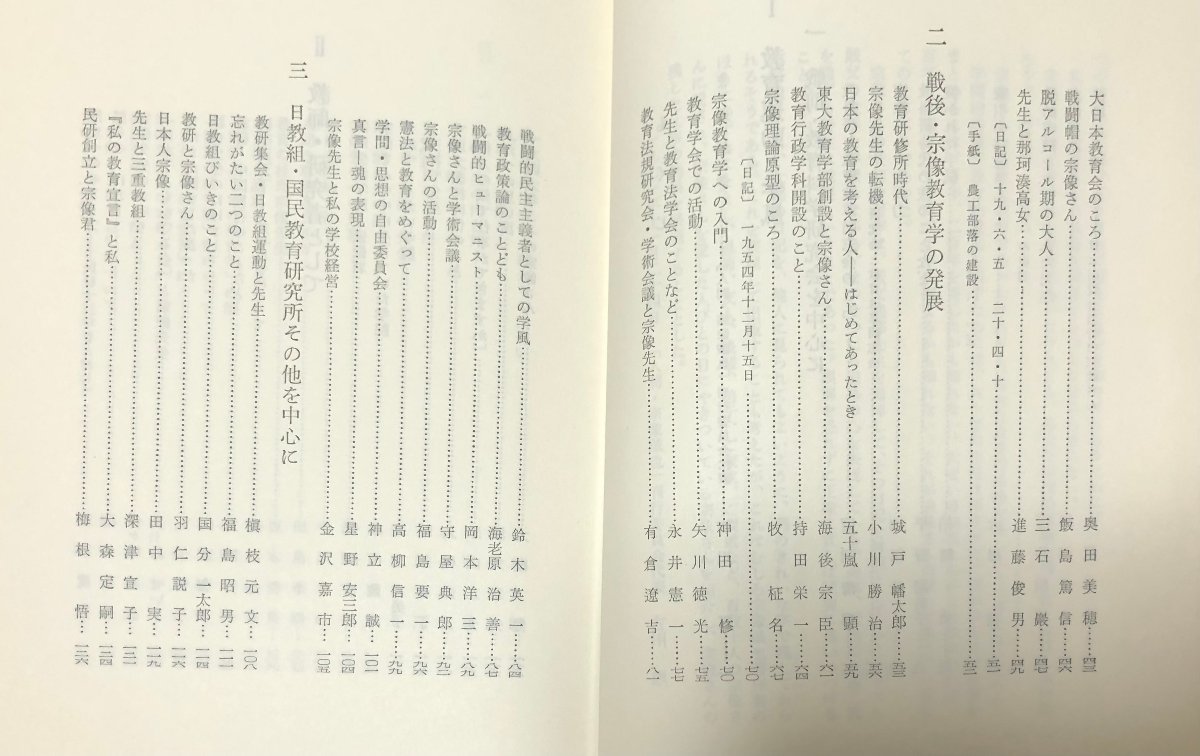 大日本教育会のころ……奥田美穂……四三
戦闘帽の宗像さん……飯島篤信……四六
脱アルコール期の大人……三石巌……四七
先生と那珂湊高女……進藤俊男……四九
〔日記〕 十九・六・五――二十・四・十……五一
〔手紙〕 農工部落の建設……五二
二 戦後・宗像教育学の発展
教育研修所時代……城戸幡太郎……五三
宗像先生の転機……小川勝治……五六
日本の教育を考える人――はじめてあったとき……五十嵐顕……五九
東大教育学部創設と宗像さん……海後宗臣……六一
教育行政学科開設のこと……持田栄一……六四
宗像理論原型のころ……牧柾名……六七
〔日記〕 一九五四年十二月十五日……七〇
宗像教育学への入門……神田修……七〇
教育学会での活動……矢川徳光……七五
先生と教育法学会のことなど……永井憲一……七七
教育法規研究会・学術会議と宗像先生……有倉遼吉……八一
戦闘的民主主義者としての学風……鈴木英一……八四
教育政策論のことども……海老原治善……八七
戦闘的ヒューマニスト……岡本洋三……八八
宗像さんと学術会議……守屋典郎……九二
宗像さんの活動……福島要一……九六
憲法と教育をめぐって……高柳信一……九九
学問・思想の自由委員会……神立誠……一〇一
真言―魂の表現……星野安三郎……一〇四
宗像先生と私の学校経営……金沢嘉市……一〇五
三 日教組・国民教育研究所その他を中心に
教研集会・日教組運動と先生……槇枝元文……一〇八
忘れがたい二つのこと……福島昭男……一一二
日教組びいきのこと……国分一太郎……一一四
教研と宗像さん……羽仁説子……一一六
日本人宗像……田中実……一一九
先生と三重教組……深津宣子……一二一
『私の教育宣言』と私……大森定嗣……一二四
民研創立と宗像君……梅根悟……一二六